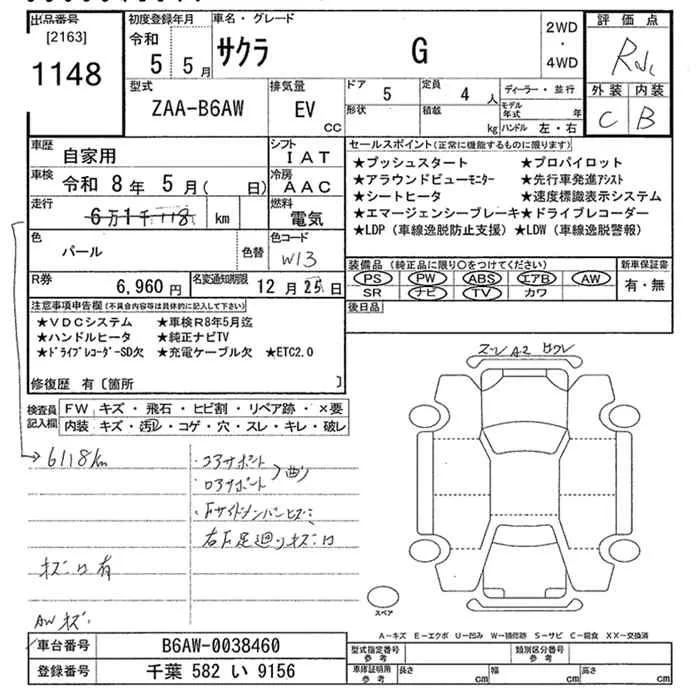 出品番号 初度登録年月 車名・グレード 2WD・4WD 評価点
[2163] 令和
1148 5 5月 サクラ G R
外装 内装
C B
型式 排気量 ドア 5 定員 4人 ディーラー・並行
ZAA-B6AW EV cc 形状 積載 kg モデル年式 年
ハンドル 左・右
車歴 自家用 シフト IAT
車検 令和 8年 5月( 日) 冷房 AAC
走行 6万1千118 km 燃料 電気
色 パール 色替 色コード W13
R券 6,960円 名変通知期限 12月25日
セールスポイント(正常に機能するものに限ります)
★プッシュスタート ★プロパイロット
★アラウンドビューモニター ★先行車発進アシスト
★シートヒータ ★速度標識表示システム
★エマージェンシーブレーキ ★ドライブレコーダー
★LDP(車線逸脱防止支援) ★LDW(車線逸脱警報)
装備品(純正品に限り○をつけてください) 新車保証書
PS PW ABS エアB AW 有・無
SR ナビ TV カワ
後日品
注意事項申告欄(不具合内容等は具体的に記入して下さい)
★VDCシステム ★車検R8年5月迄
★ハンドルヒータ ★純正ナビTV
★ドライブレコーダーSD欠 ★充電ケーブル欠 ★ETC2.0
修復歴 有〔箇所 〕
検査員記入欄 FW キズ・飛石・ヒビ割・リペア跡・×要
内装 キズ・汚レ・コゲ・穴・スレ・キレ・破レ
→6118km
・コアサポート
・ロアサポート 曲り
右F足廻りキズ
キズ 有
AWキズ
A2
スペア
A-キズ E-エクボ U-凹み W-補修跡 S-サビ C-腐食 XX-交換済
車台番号 B6AW-0038460
登録番号 千葉 582 い 9156
型式指定番号 参考 類別区分番号 参考
車庫証明用 参考 長さ cm 幅 cm 高さ cm